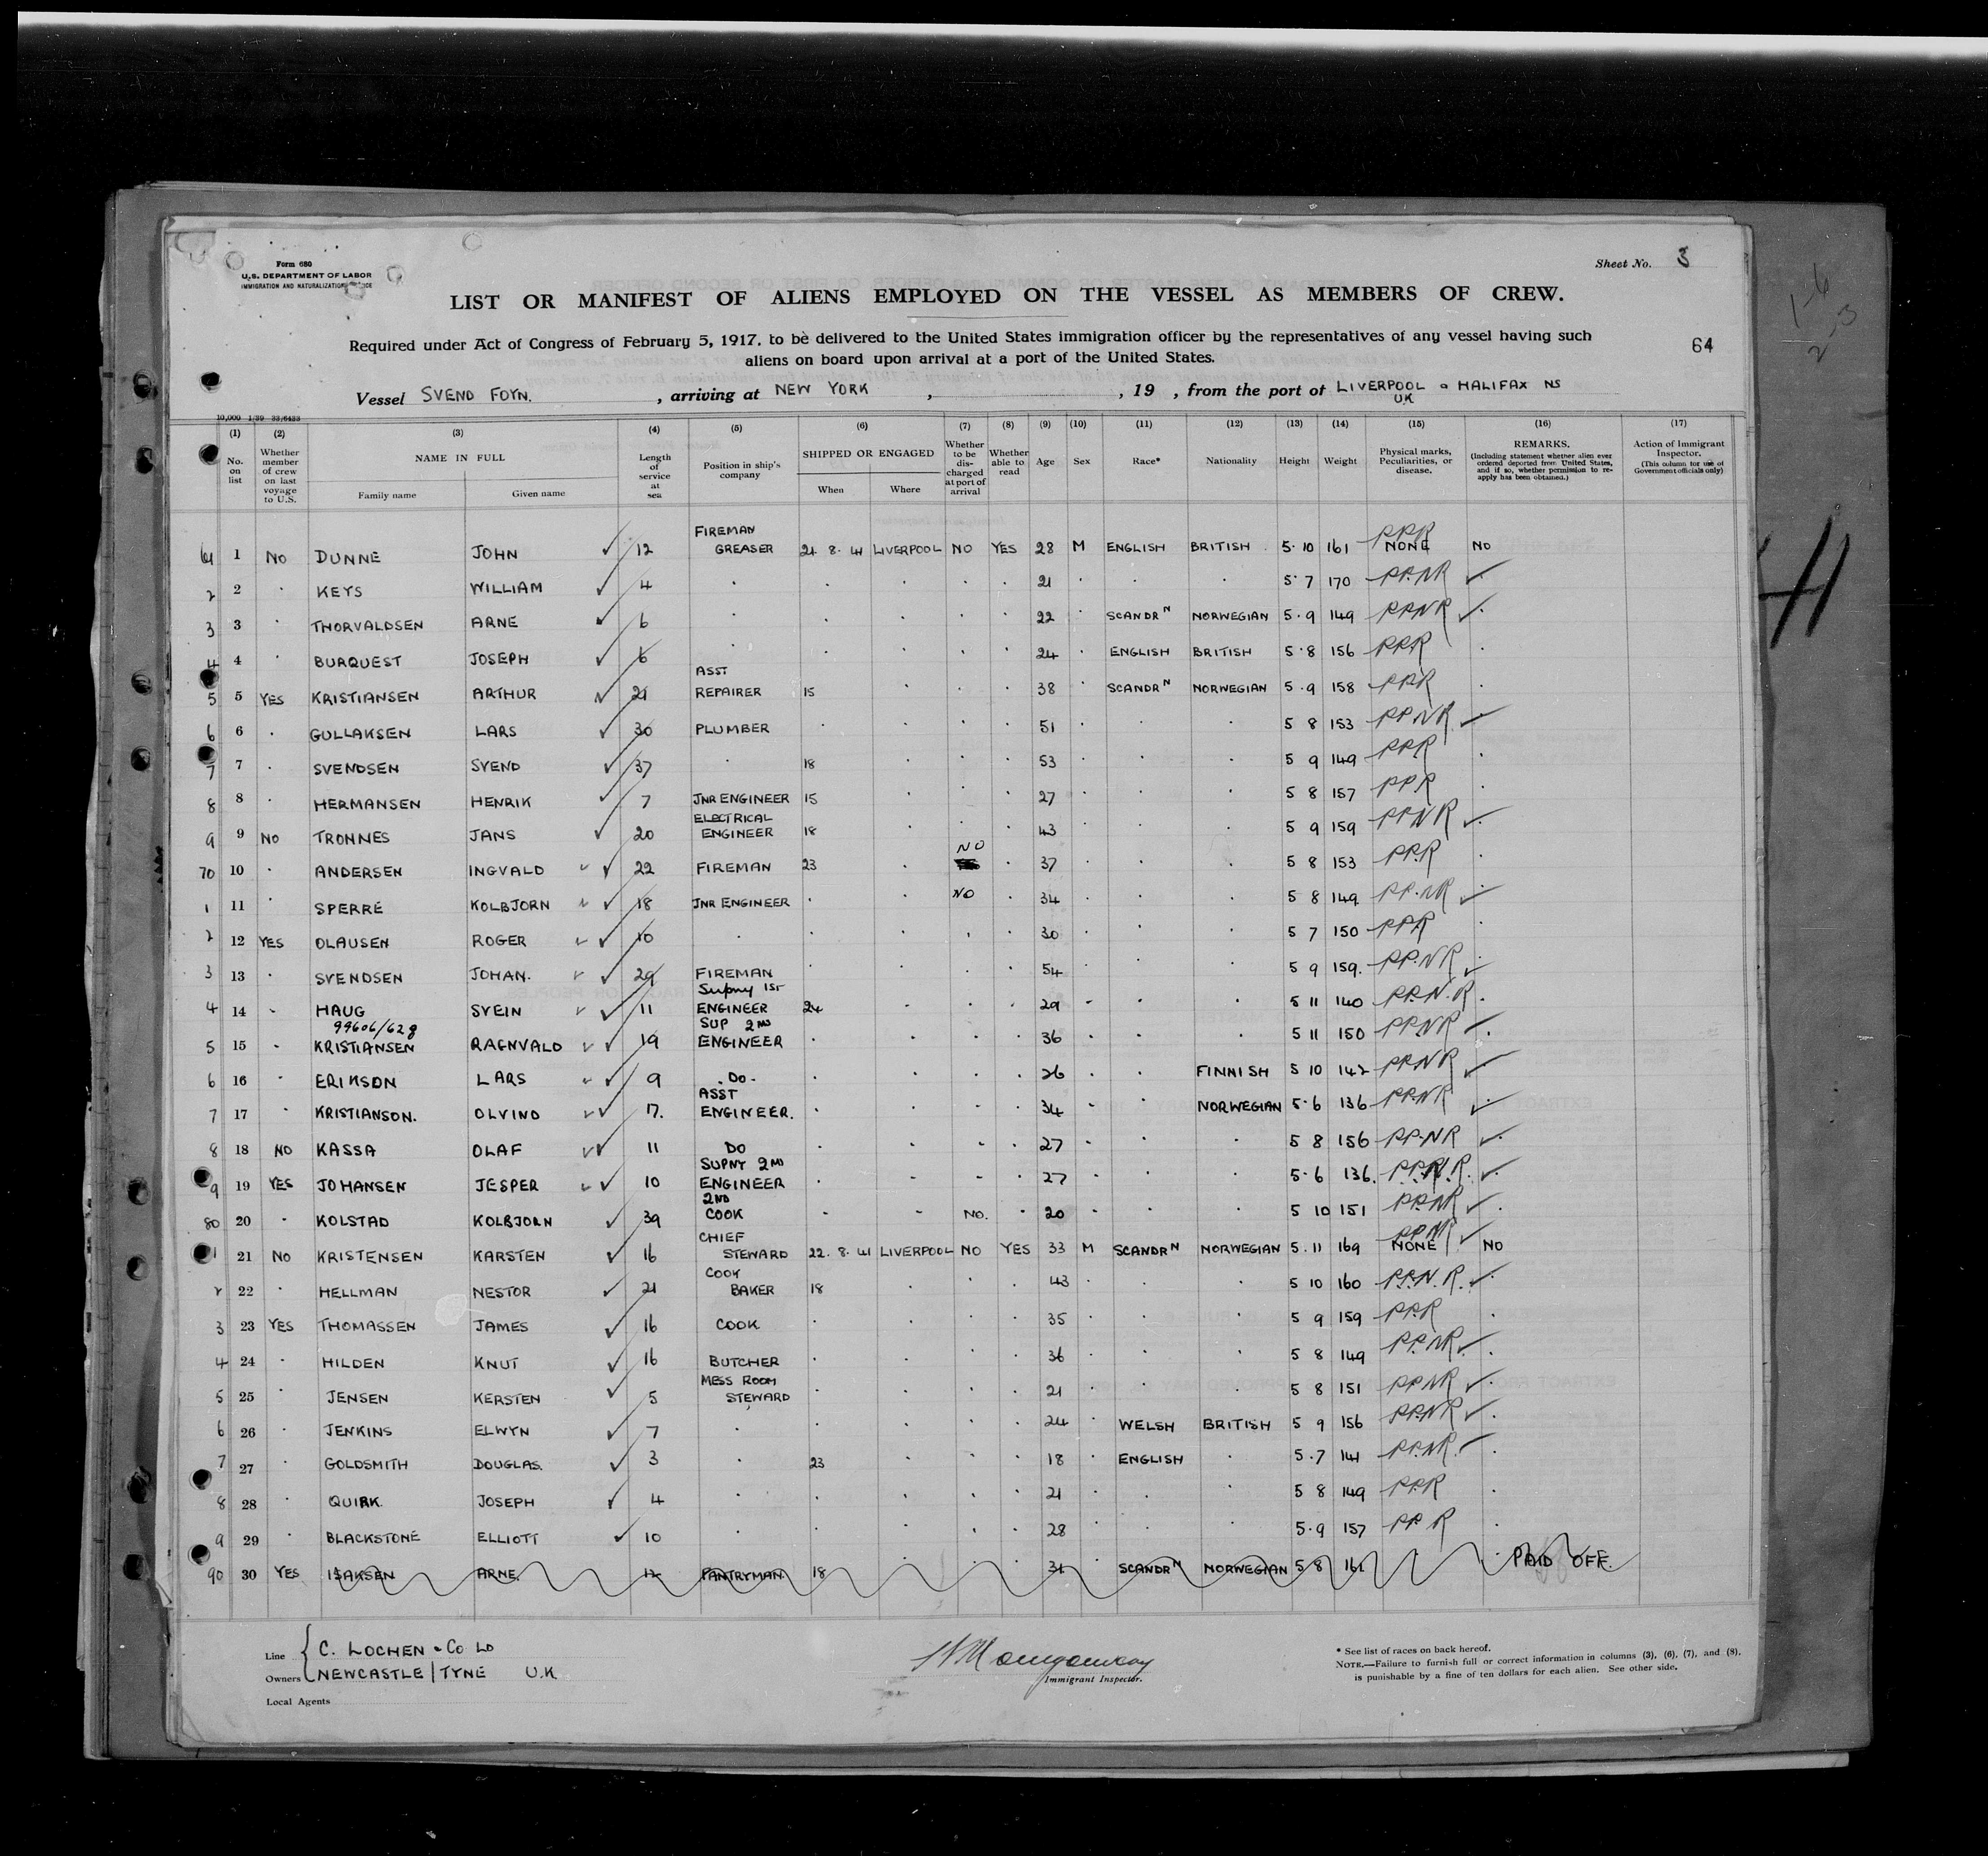 Form 680
U.S. DEPARTMENT OF LABOR
IMMIGRATION AND NATURALIZATION
Sheet No. 3
LIST OR MANIFEST OF ALIENS EMPLOYED ON THE VESSEL AS MEMBERS OF CREW.
Required under Act of Congress of February 5, 1917, to be delivered to the United States immigration officer by the representatives of any vessel having such
aliens on board upon arrival at a port of the United States.
64
Vessel SVEND FOYN. , arriving at NEW YORK , , 19 , from the port of LIVERPOOL & HALIFAX NS
UK
10,000 1/39 33/6433
(1) (2) (3) (4) (5) (6) (7) (8) (9) (10) (11) (12) (13) (14) (15) (16) (17)
No. on list
Whether member of crew on last voyage to U.S.
NAME IN FULL
Family name Given name
Length of service at sea
Position in ship's company
SHIPPED OR ENGAGED
When Where
Whether to be discharged at port of arrival
Whether able to read
Age
Sex
Race*
Nationality
Height
Weight
Physical marks, Peculiarities, or disease.
REMARKS.
(Including statement whether alien ever ordered deported from United States, and if so, whether permission to re-apply has been obtained.)
Action of Immigrant Inspector.
(This column for use of Government officials only)
61 1 NO DUNNE JOHN ✓ 12 FIREMAN GREASER 21. 8. 41 LIVERPOOL NO YES 28 M ENGLISH BRITISH 5.10 161 PPR NONE NO
2 2 " KEYS WILLIAM ✓ 4 " " " " " 21 " " " 5.7 170 PP.NR ✓
3 3 " THORVALDSEN ARNE ✓ 6 " " " " " 22 " SCANDRN NORWEGIAN 5.9 149 PPNR ✓
4 4 " BURQUEST JOSEPH ✓ 6 " " " " " 24 " ENGLISH BRITISH 5.8 156 PPR
5 5 YES KRISTIANSEN ARTHUR ✓ 21 ASST REPAIRER 15 " " " 38 " SCANDRN NORWEGIAN 5.9 158 PPR
6 6 " GULLAKSEN LARS ✓ 30 PLUMBER " " " " 51 " " " 5 8 153 PP.NR ✓
7 7 " SVENDSEN SVEND ✓ 37 " 18 " " " 53 " " " 5 9 149 PPR
8 8 " HERMANSEN HENRIK ✓ 7 JNR ENGINEER 15 " " " 27 " " " 5 8 157 PPR
9 9 NO TRONNES JANS ✓ 20 ELECTRICAL ENGINEER 18 " " " 43 " " " 5 9 159 PPNR ✓
70 10 " ANDERSEN INGVALD ✓ ✓ 22 FIREMAN 23 " NO " 37 " " " 5 8 153 PP.R
1 11 " SPERRE KOLBJORN ✓ ✓ 18 JNR ENGINEER " " NO " 34 " " " 5 8 149 PP.NR ✓
2 12 YES OLAUSEN ROGER ✓ ✓ 10 " " " " " 30 " " " 5 7 150 PPR
3 13 " SVENDSEN JOHAN. ✓ ✓ 29 FIREMAN " " " " 54 " " " 5 9 159. PP.NR ✓
4 14 " HAUG SVEIN ✓ ✓ 11 Supny 1st ENGINEER 24 " " " 29 " " " 5 11 140 PP.N.R.
99606/628
5 15 " KRISTIANSEN RAGNVALD ✓ ✓ 19 SUP 2ND ENGINEER " " " " 36 " " " 5 11 150 PPNR ✓
6 16 " ERIKSON LARS ✓ ✓ 9 . DO . " " " " 26 " " FINNISH 5 10 142 PPNR ✓
7 17 " KRISTIANSON. OLVIND ✓ ✓ 17. ASST ENGINEER. " " " " 34 " " NORWEGIAN 5.6 136 PPNR ✓
8 18 NO KASSA OLAF ✓ ✓ 11 DO " " " " 27 " " " 5 8 156 PP.NR ✓
9 19 YES JOHANSEN JESPER ✓ ✓ 10 SUPNY 2ND ENGINEER " " " " 27 " " " 5.6 136. ✓
80 20 " KOLSTAD KOLBJORN ✓ 39 2ND COOK " " NO. " 20 " " " 5 10 151 PPNR ✓
1 21 NO KRISTENSEN KARSTEN ✓ 16 CHIEF STEWARD 22. 8. 41 LIVERPOOL NO YES 33 M SCANDRN NORWEGIAN 5.11 169 PPNR ✓ NONE NO
2 22 " HELLMAN NESTOR ✓ 21 COOK BAKER 18 " " " 43 " " " 5 10 160 PP.N.R. ✓
3 23 YES THOMASSEN JAMES ✓ 16 COOK " " " " 35 " " " 5 9 159 PPR
4 24 " HILDEN KNUT ✓ 16 BUTCHER " " " " 36 " " " 5 8 149 PP.NR ✓
5 25 " JENSEN KERSTEN ✓ 5 MESS ROOM STEWARD " " " " 21 " " " 5 8 151 PPNR ✓
6 26 " JENKINS ELWYN ✓ 7 " " " " " 24 " WELSH BRITISH 5 9 156 PPNR ✓
7 27 " GOLDSMITH DOUGLAS. ✓ 3 " 23 " " " 18 " ENGLISH " 5.7 141 PP.NR. ✓
8 28 " QUIRK JOSEPH ✓ 4 " " " " " 21 " " " 5 8 149 PP.R
9 29 " BLACKSTONE ELLIOTT ✓ 10 " " " " " 28 " " " 5.9 157 PP R
90 30 YES ISAKSEN ARNE. 12 PANTRYMAN 18 " " " 31 " SCANDRN NORWEGIAN 5 8 161 PAID OFF.
Line { C. LOCHEN & CO LD
Owners NEWCASTLE / TYNE U.K
Local Agents
Immigrant Inspector.
* See list of races on back hereof.
NOTE.—Failure to furnish full or correct information in columns (3), (6), (7), and (8),
is punishable by a fine of ten dollars for each alien. See other side.